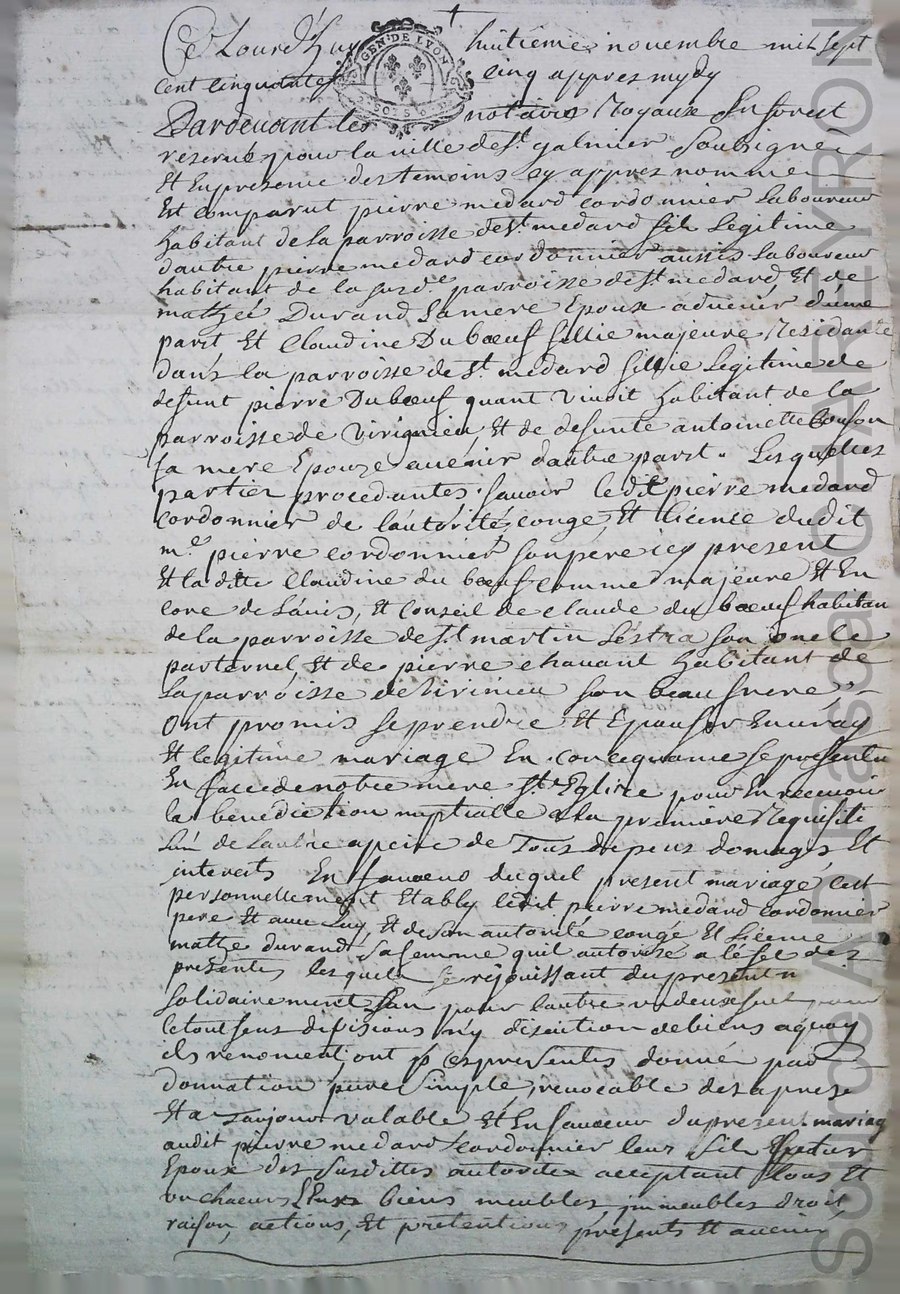 Ce Lourd'huy huitieme novembre mil sept
GEN. DE LYON
cent cinquante cinq appres mydy
Pardevant les notaires Royaux En forest
reservés pour la ville de St galmier Soubsignes
Et En presence des temoins cy appres nommes
Est comparut pierre medard cordonnier Laboureur
habitant de la parroisse de St medard fils Legitime
dautre pierre medard cordonnier aussis Laboureur
habitant de la susde parroisse de St medard Et de
mathée Durand Sa mere Epoux advenir d'une
part Et Claudine Du bœuf fillie majeure Residante
dans la parroisse de St medard fillie Legitime de
defunt pierre Du bœuf quant vivoit habitant de la
parroisse de Virignieu Et de defunte antoinette
sa mere Epouze avenir dautre part. Lesquelles
parties procedantes. savoir ledit pierre medard
cordonnier de l'autorité, congé, Et licence dudit
me pierre cordonnier son pere icy present
Et la ditte Claudine du bœuf comme majeure Et En
core de L'avis, Et Conseil de claude du bœuf habitan
de la parroisse de St martin Lestra son oncle
parternel Et de pierre chavant habitant de
La parroisse de Virinieu son beau frere
Ont promis se prendre Et Epouser En vray
Et legitime mariage En concequance se presenter
En face de notre mere Ste Eglize pour En recevoir
la bénédiction nuptialle a la premiere Requisiti
L'un de Lautre a peine de Tous depens domages Et
interets En faveur duquel present mariage c'est
personnellement Etably ledit pierre medard cordonnier
pere Et avec Luy, Et de son autorité congé Et Licence
mathé durand Sa femme quil autorise a l'éfet des
presentes lesquels se réjouissant du present
Solidairement L'un pour lautre
le tout sans divisions n'y discution de biens a quoy
ils renoncent ont p ces presentes donné par
donnation pure Simple, irevocable des a prese
Et a Toujour valable Et En faveur du present mariag
audit pierre medard Cordonnier leur fils futur
Epoux des Susdittes autorites acceptant tous Et
un chacuns Leurs biens meubles, immeubles droit,
raison, actions, Et pretentions présents Et avenir,
Source AD Pascal CHAREYRON